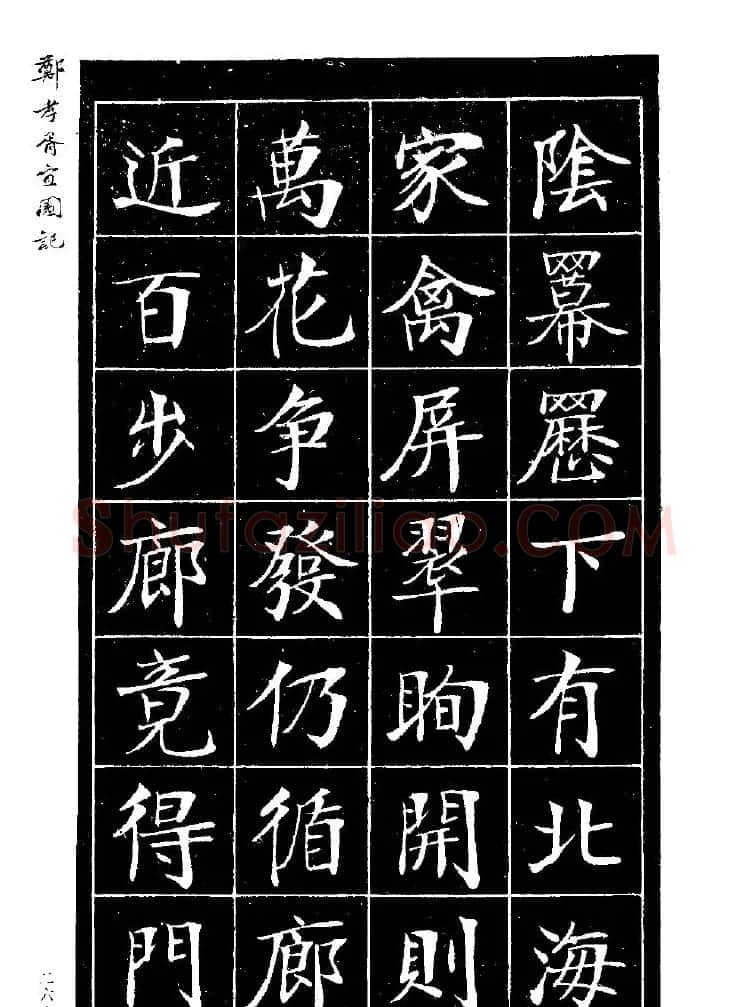 鄭孝胥宣圃記
陰羃䍥下有北海
家禽屏翠眴開則
萬花争發仍循廊
近百步廊竟得門
二八
Shufaziliao.COM